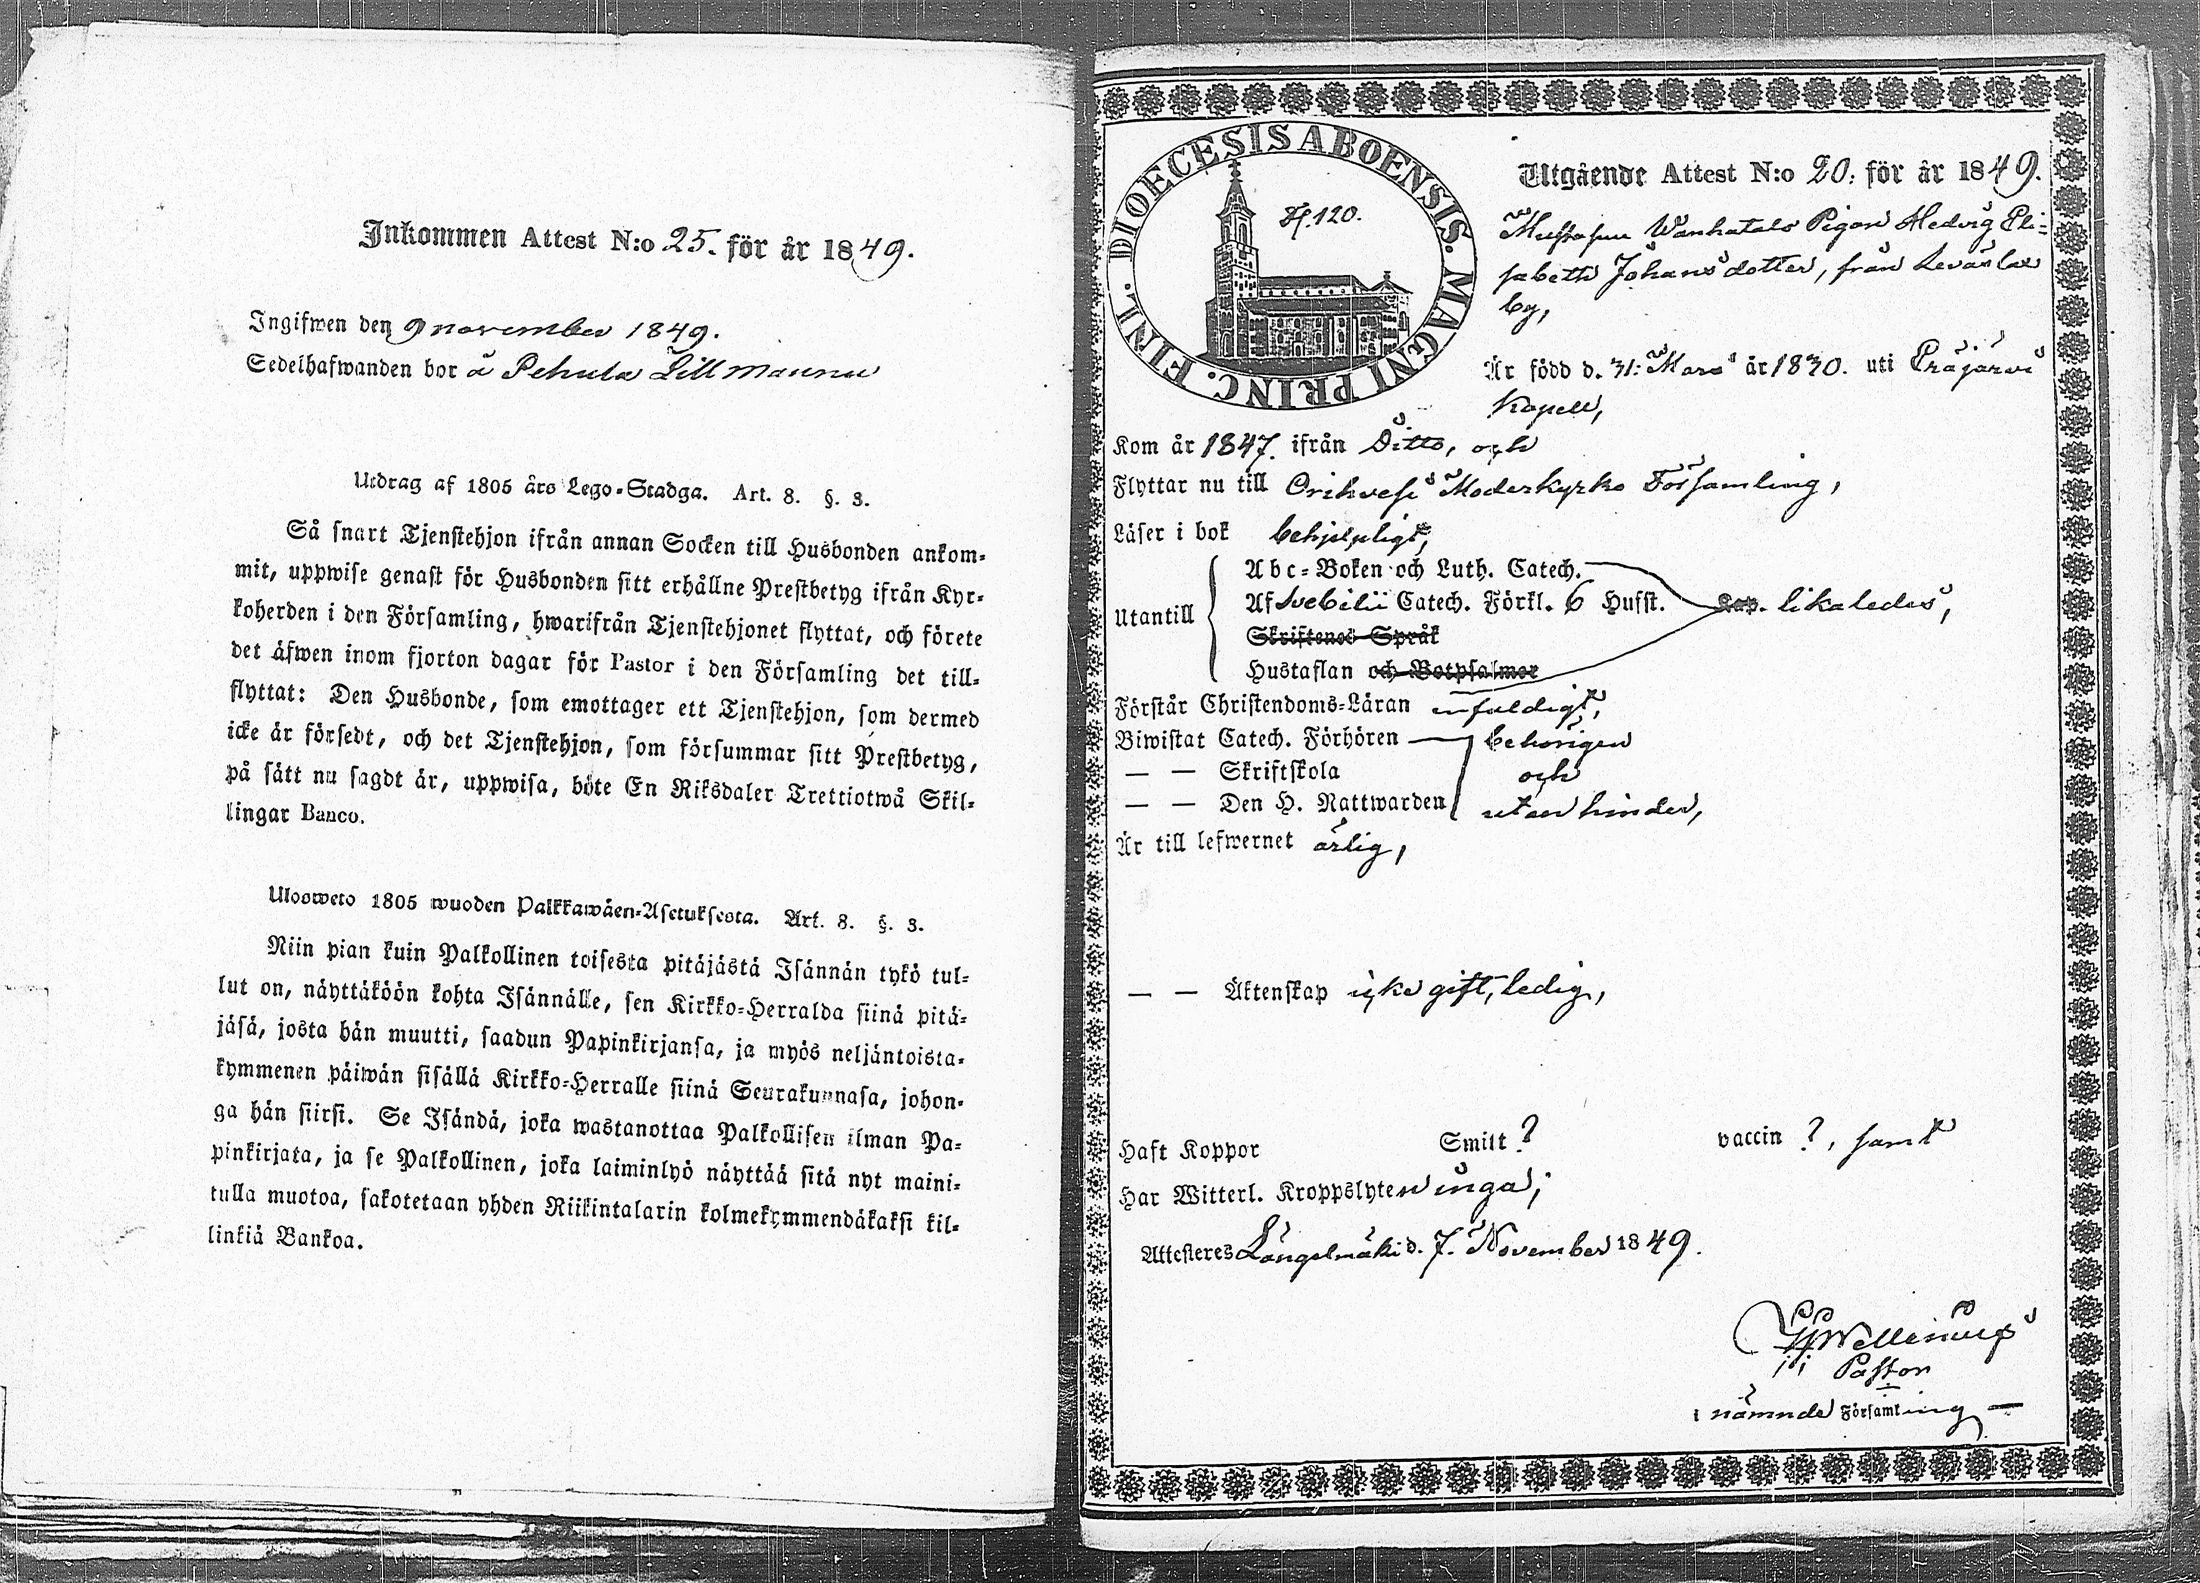 Inkommen Attest N:o 25. för år 1849.
Ingifwen den 9 november 1849.
Sedelhafwanden bor å Pehula Lill Maunu
Utdrag af 1805 års Lego-Stadga. Art. 8. §. 3.
Så snart Tjenstehjon ifrån annan Socken till Husbonden ankom-
mit, uppwise genast för Husbonden sitt erhållne Prestbetyg ifrån Kyr-
koherden i den Församling, hwarifrån Tjenstehjonet flyttat, och förete
det äfwen inom fjorton dagar för Pastor i den Församling det till-
flyttat: Den Husbonde, som emottager ett Tjenstehjon, som dermed
icke är försedt, och det Tjenstehjon, som försummar sitt Prestbetyg,
på sätt nu sagdt är, uppwisa, böte En Riksdaler Trettiotwå Skil-
lingar Banco.
Uloosweto 1805 wuoden Palkkawäen-Asetuksesta. Art. 8. §. 3.
Niin pian kuin Palkollinen toisesta pitäjästä Isännän tykö tul-
lut on, näyttäköön kohta Isännälle, sen Kirkko-Herralda siinä pitä-
jäsä, josta hän muutti, saadun Papinkirjansa, ja myös neljäntoista-
kymmenen päiwän sisällä Kirkko-Herralle siinä Seurakunnasa, johon-
ga hän siirsi. Se Isändä, joka wastanottaa Palkollisen ilman Pa-
pinkirjata, ja se Palkollinen, joka laiminlyö näyttää sitä nyt maini-
tulla muotoa, sakotetaan yhden Riikintalarin kolmekymmendäkaksi kil-
linkiä Bankoa.
DIOECESIS ABOENSIS. MAGNI PRINC. FINL.
120.
Utgående Attest N:o 20. för år 1849.
Wanhatalo Pigan Hedvig Eli-
sabeth Johansdotter, från Leväslax
by,
Är född d. 31: Mars år 1830. uti Eräjärvi
Kapell,
Kom år 1847. ifrån Ditto, och
Flyttar nu till Orihvesi Moderkyrko Församling,
Läser i bok behjelpligt,
Utantill
Abc-Boken och Luth. Catech.
Af Svebilii Catech. Förkl. 6 Hufst. Cap. likaledes,
Skriftenes Språk
Hustaflan och Botpsalmer
Förstår Christendoms-Läran enfaldigt,
Biwistat Catech. Förhören behörigen
— — Skriftskola och
— — Den H. Nattwarden utan hinder,
Är till lefwernet ärlig,
— — Äktenskap icke gift, ledig,
Haft Koppor Smitt ? vaccin ?, samt
Har Witterl. Kroppslyten inga;
Attesteres Längelmäki d. 7. November 1849.
Wellenius
Pastor
i nämnde Församling